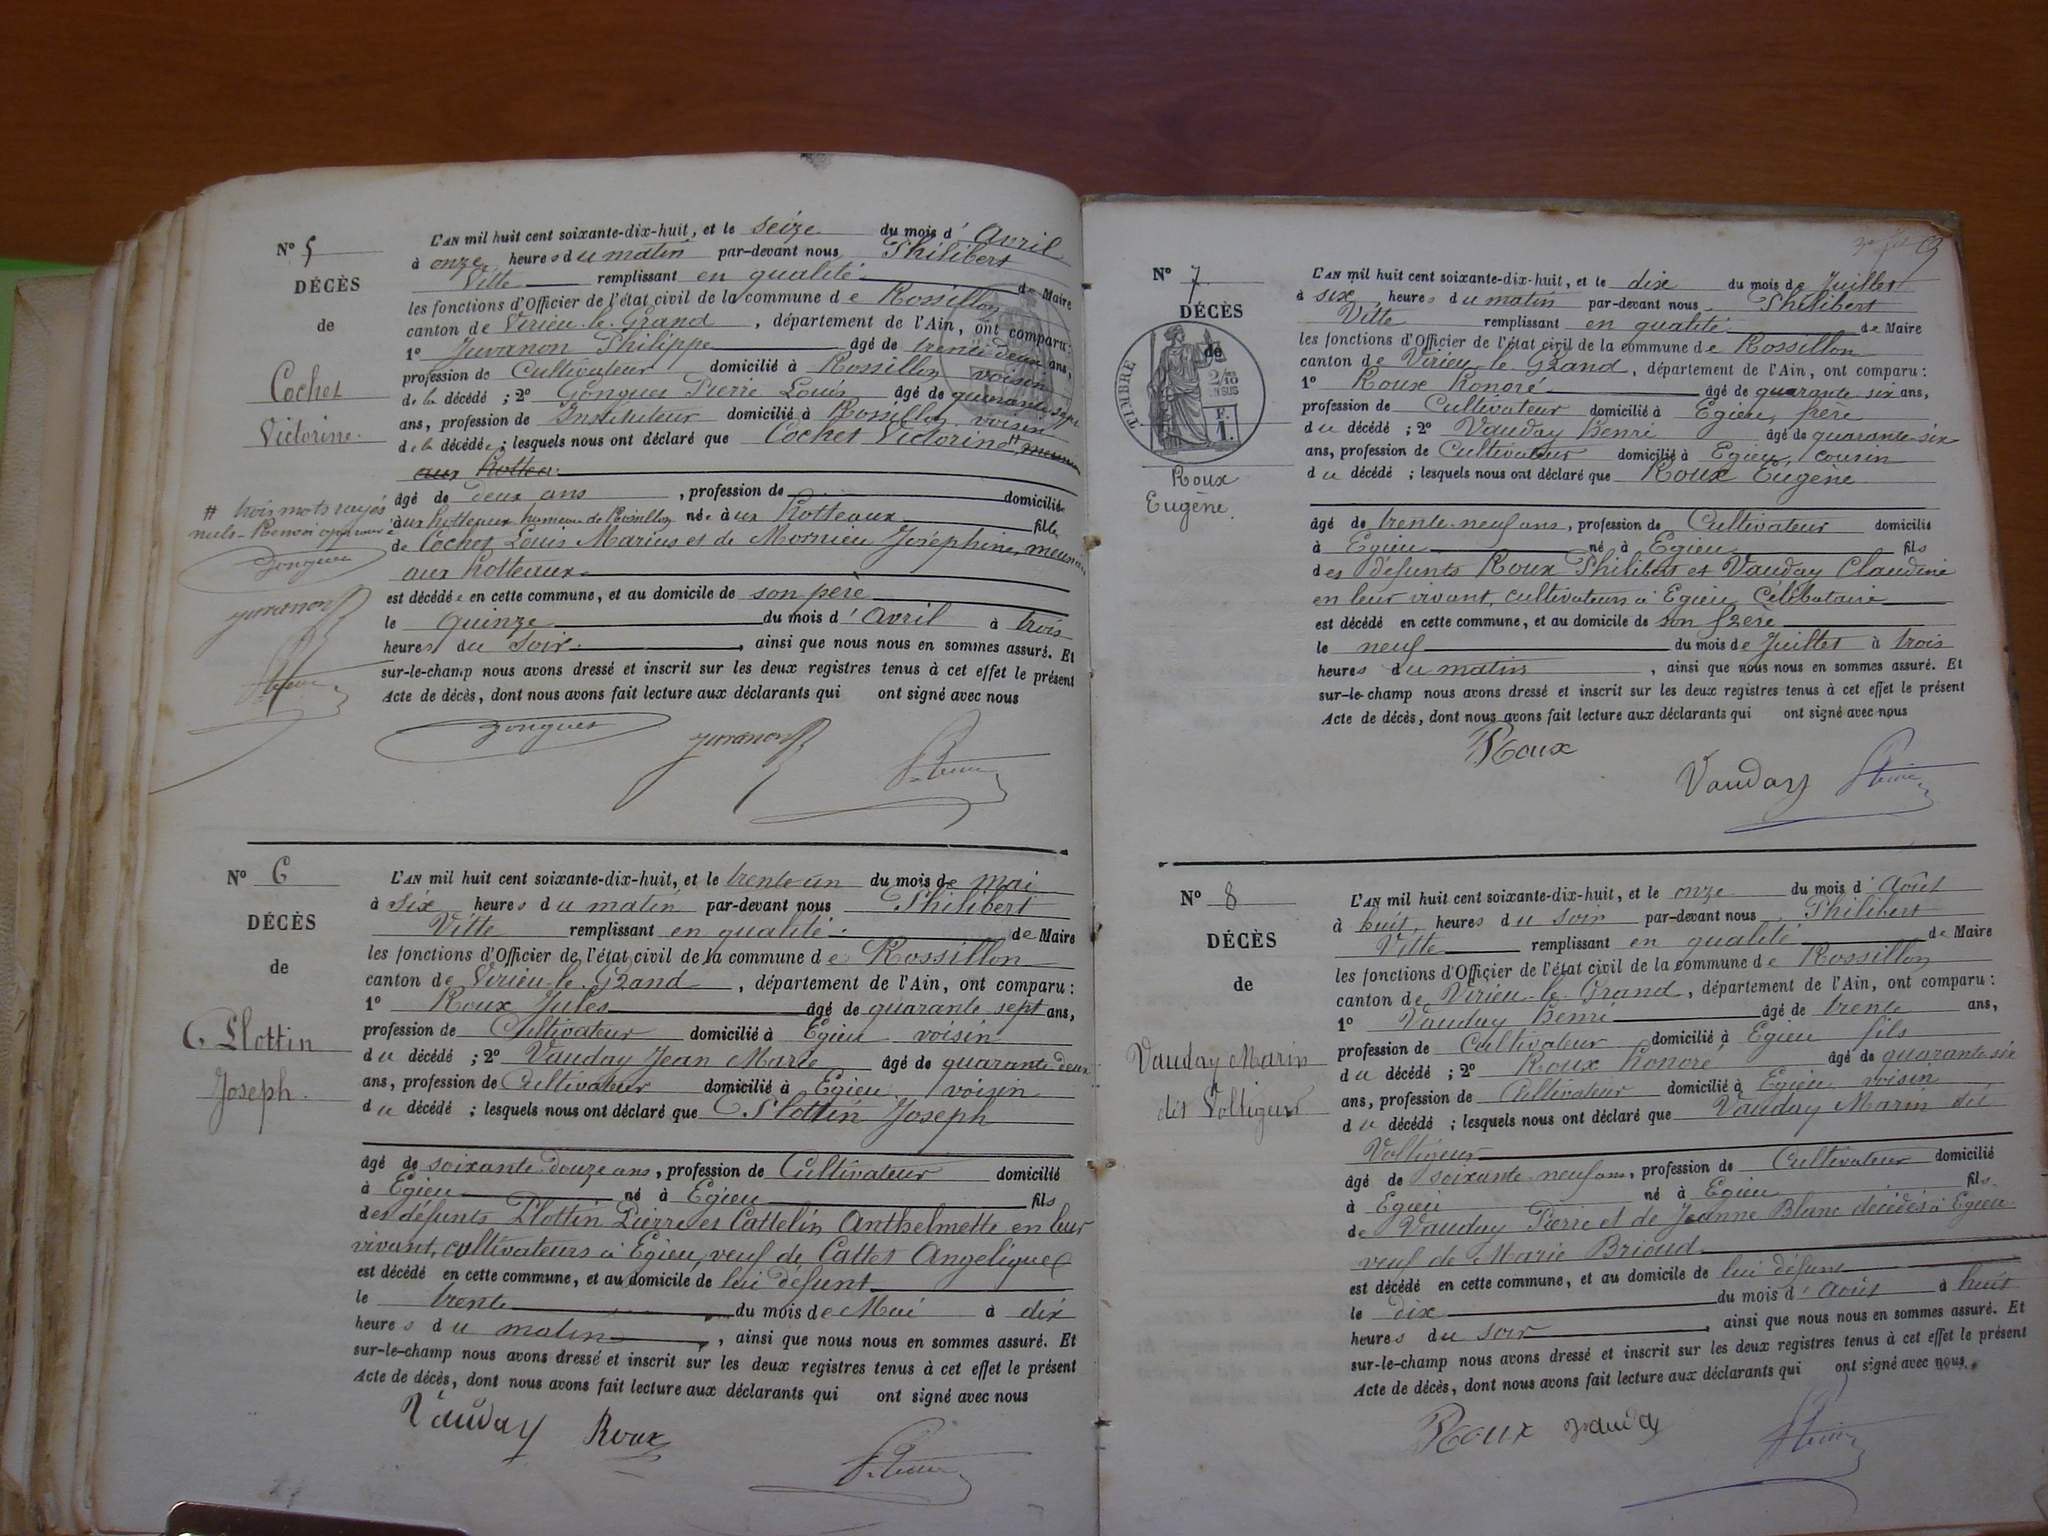 N° 5
DÉCÈS
de
Cochet
Victorine.
L'AN mil huit cent soixante-dix-huit, et le seize du mois d' Avril
à onze heures du matin par-devant nous Philibert
Vitte remplissant en qualité de Maire
les fonctions d'Officier de l'état civil de la commune de Rossillon
canton de Virieu-le-Grand, département de l'Ain, ont comparu:
1° Juvanon Philippe âgé de trente deux ans,
profession de Cultivateur domicilié à Rossillon voisin
de la décédé ; 2° Gongues Pierre Louis âgé de quarante sept
ans, profession de Instituteur domicilié à Rossillon voisin
de la décédée ; lesquels nous ont déclaré que Cochet Victorine #
aux hotteaux
âgé de deux ans, profession de domiciliée
aux hotteaux hameau de Rossillon née aux hotteaux fille
de Cochet Louis Marius et de Mornieu Joséphine, meuniers
aux hotteaux
est décédée en cette commune, et au domicile de son père
le quinze du mois d' avril à trois
heures du soir, ainsi que nous nous en sommes assuré. Et
sur-le-champ nous avons dressé et inscrit sur les deux registres tenus à cet effet le présent
Acte de décès, dont nous avons fait lecture aux déclarants qui ont signé avec nous
# trois mots rayés
nuls - Renvoi approuvé
Gongues
Juvanon
Gongues Juvanon
N° 6
DÉCÈS
de
Plottin
Joseph.
L'AN mil huit cent soixante-dix-huit, et le trente-un du mois de mai
à six heures du matin par-devant nous Philibert
Vitte remplissant en qualité de Maire
les fonctions d'Officier de l'état civil de la commune de Rossillon
canton de Virieu-le-Grand, département de l'Ain, ont comparu:
1° Roux Jules âgé de quarante sept ans,
profession de Cultivateur domicilié à Egieu voisin
du décédé ; 2° Vauday Jean Marie âgé de quarante deux
ans, profession de Cultivateur domicilié à Egieu, voisin
du décédé ; lesquels nous ont déclaré que Plottin Joseph
âgé de soixante douze ans, profession de Cultivateur domicilié
à Egieu né à Egieu fils
des défunts Plottin Pierre et Cattelin Anthelmette en leur
vivant, cultivateurs à Egieu, veuf de Cattet Angelique
est décédé en cette commune, et au domicile de lui défunt
le trente du mois de Mai à dix
heures du matin, ainsi que nous nous en sommes assuré. Et
sur-le-champ nous avons dressé et inscrit sur les deux registres tenus à cet effet le présent
Acte de décès, dont nous avons fait lecture aux déclarants qui ont signé avec nous
Vauday Roux
N° 7
DÉCÈS
de
TIMBRE
2/10
EN SUS
F.
1.
Roux
Eugène.
L'AN mil huit cent soixante-dix-huit, et le dix du mois de Juillet
à six heures du matin par-devant nous Philibert
Vitte remplissant en qualité de Maire
les fonctions d'Officier de l'état civil de la commune de Rossillon
canton de Virieu-le-Grand, département de l'Ain, ont comparu:
1° Roux Honoré âgé de quarante six ans,
profession de Cultivateur domicilié à Egieu, frère
du décédé ; 2° Vauday Henri âgé de quarante-six
ans, profession de Cultivateur domicilié à Egieu, cousin
du décédé ; lesquels nous ont déclaré que Roux Eugène
âgé de trente-neuf ans, profession de Cultivateur domicilié
à Egieu né à Egieu fils
des défunts Roux Philibert et Vauday Claudine
en leur vivant, cultivateurs à Egieu Célibataire
est décédé en cette commune, et au domicile de son frère
le neuf du mois de Juillet à trois
heures du matin, ainsi que nous nous en sommes assuré. Et
sur-le-champ nous avons dressé et inscrit sur les deux registres tenus à cet effet le présent
Acte de décès, dont nous avons fait lecture aux déclarants qui ont signé avec nous
Roux
Vauday
N° 8
DÉCÈS
de
Vauday Marin
dit Voltigeur
L'AN mil huit cent soixante-dix-huit, et le onze du mois d' Août
à huit heures du soir par-devant nous Philibert
Vitte remplissant en qualité de Maire
les fonctions d'Officier de l'état civil de la commune de Rossillon
canton de Virieu-le-Grand, département de l'Ain, ont comparu:
1° Vauday Henri âgé de trente ans,
profession de Cultivateur domicilié à Egieu fils
du décédé ; 2° Roux honoré âgé de quarante-six
ans, profession de Cultivateur domicilié à Egieu, voisin
du décédé ; lesquels nous ont déclaré que Vauday Marin dit
Voltigeur
âgé de soixante-neuf ans, profession de Cultivateur domicilié
à Egieu né à Egieu fils
de Vauday Pierre et de Jeanne Blanc décédés à Egieu
veuf de Marie Brioud
est décédé en cette commune, et au domicile de lui défunt
le dix du mois d' août à huit
heures du soir, ainsi que nous nous en sommes assuré. Et
sur-le-champ nous avons dressé et inscrit sur les deux registres tenus à cet effet le présent
Acte de décès, dont nous avons fait lecture aux déclarants qui ont signé avec nous.
Roux Vauday